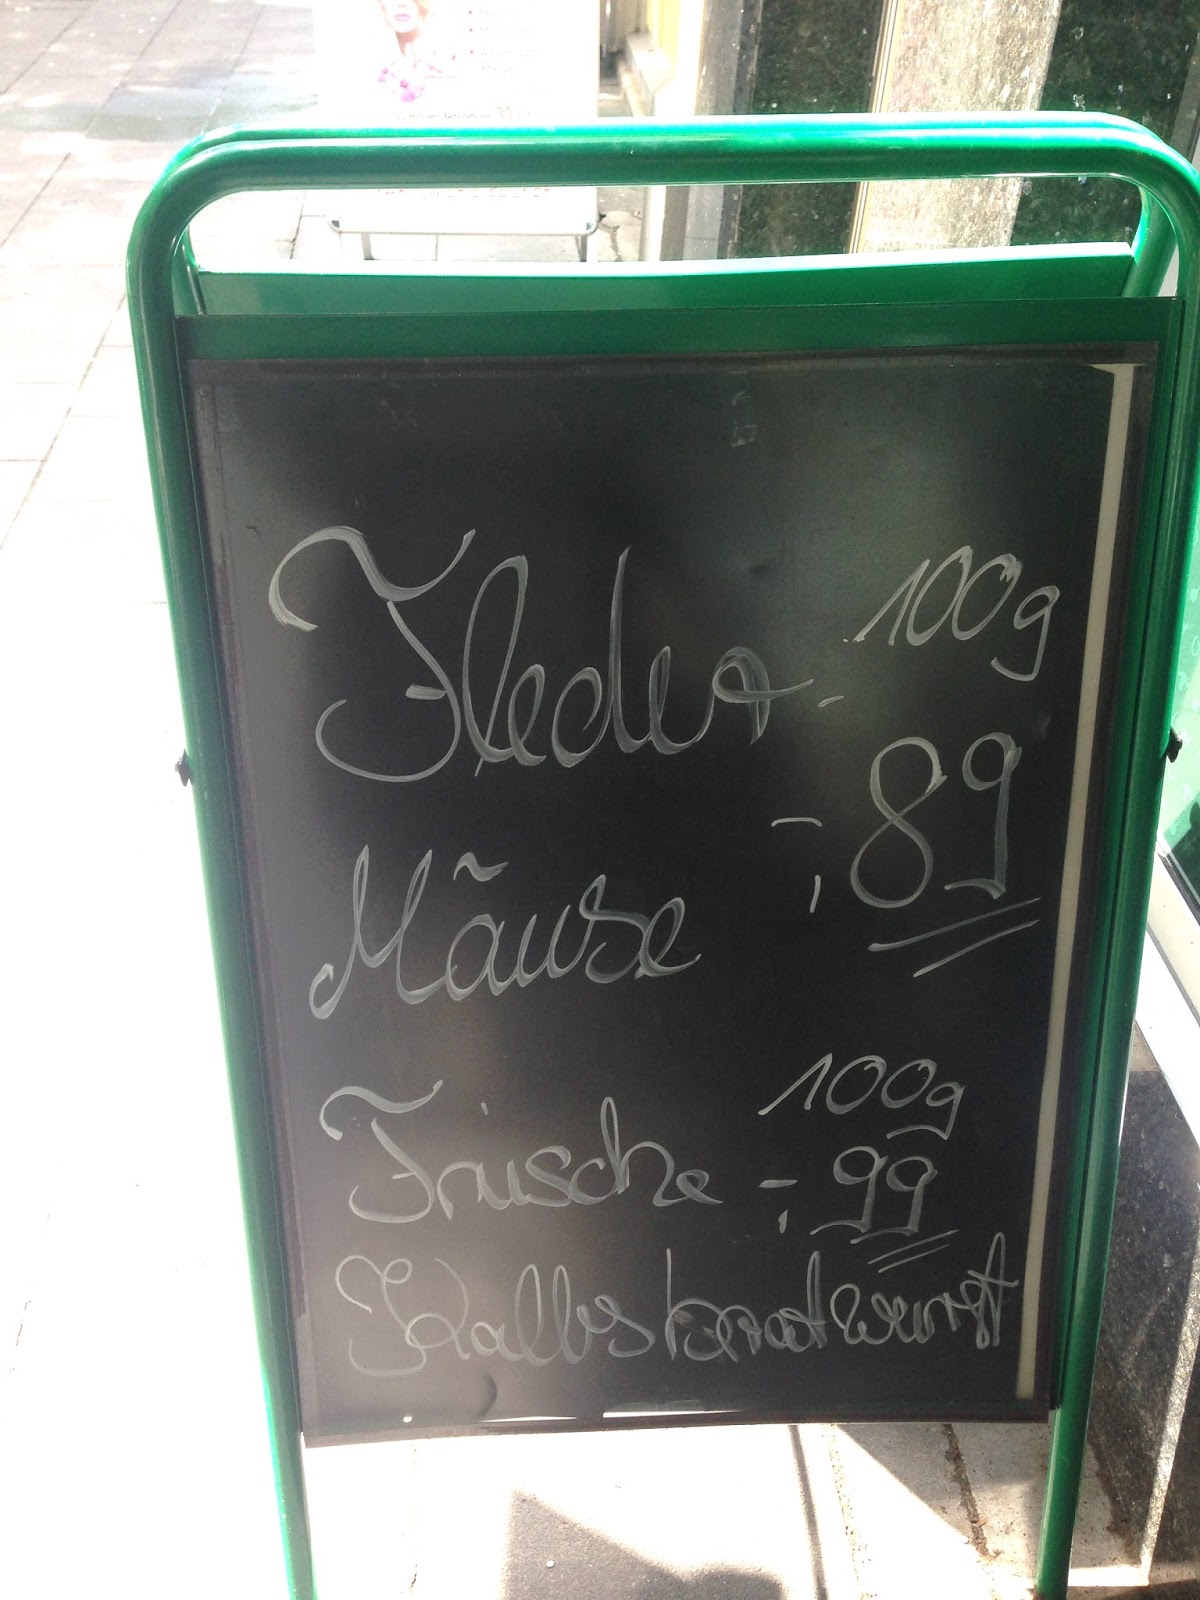 Fleder-
100g
Mäuse
-,89
Frische
100g
-,99
Kalbsbratwurst